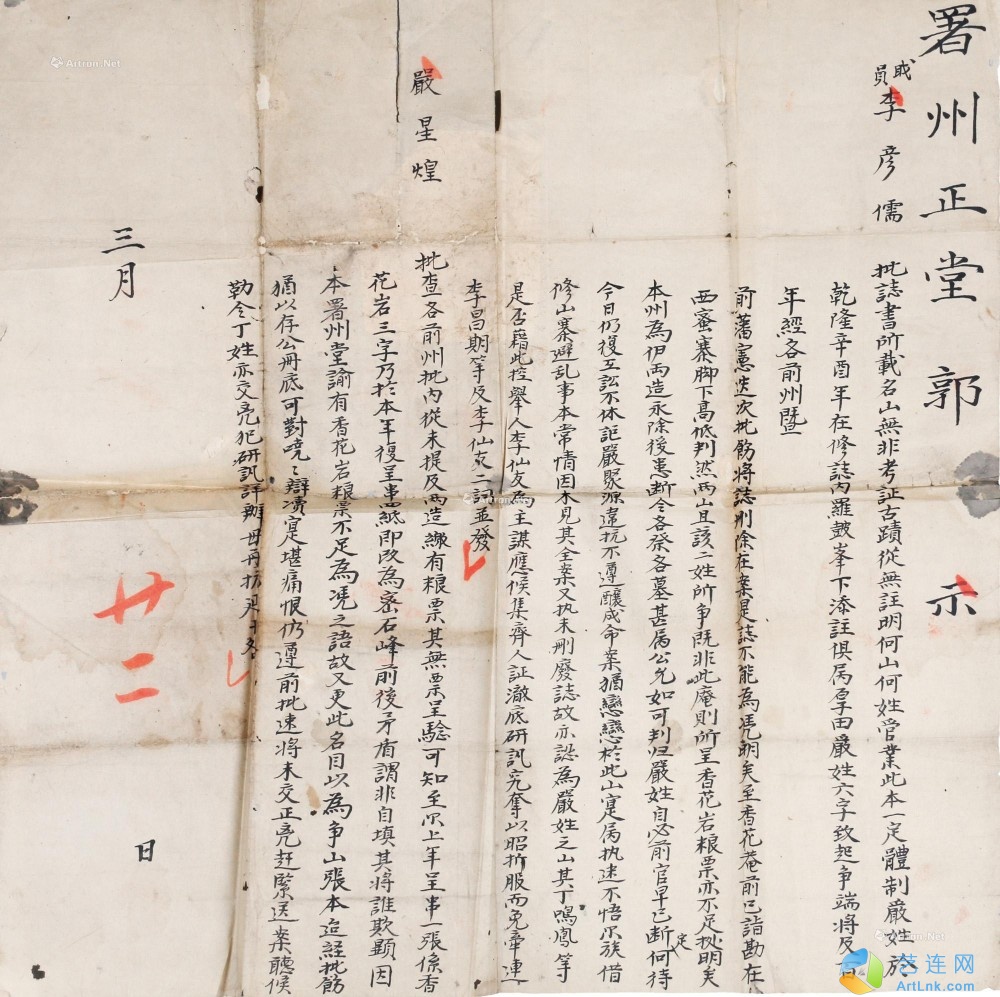 署州正堂郭示
職員李彦儒
批誌書所載名山無非考証古蹟從無註明何山何姓管業此本一定體制嚴姓於
乾隆辛酉年在修誌內羅鼓峯下添註俱属厚田嚴姓六字致起争端將及百
年經各前州暨
前藩憲迭次批飭將誌刪除在案是誌不能為凴明矣至香花菴前已詣勘在
西蜜寨脚下高低判然兩山且該二姓所争既非此庵則所呈香花岩粮票亦不足㧞明矣
本州為伊両造永除後患断令各祭各墓甚属公允如可判归嚴姓自必前官早已断定何待
今日仍復互訟不休詎嚴聚源違抗不遵釀成命案猶戀戀於此山寔属执迷不悟尔族借
修山寨避乱事本常情因未見其全案又执未刪廢誌故亦認為嚴姓之山其丁鳴鳳等
是否藉此控舉人李仙友為主謀應候集齊人証澈底研訊究奪以昭折服而免牽連
李昌期等及李仙友二詞並發
嚴星煌
批查各前州批内從未提及両造繳有粮票其無票呈騐可知至尔上年呈串一張係香
花岩三字乃於本年復呈串四紙即改為密石峰前後矛盾謂非自填其將誰欺顯因
本署州堂諭有香花岩粮票不足為凴之語故又更此名目以為争山張本迨経批飭
猶以存公冊底可對曉〻辯凟寔堪痛恨仍遵前批速將未交正兇赶緊送案聽候
勒令丁姓亦交兇犯研訊詳辦毋再抗延干咎
三月
廿二
日
Artron.Net
Artron.Net
Artron.Net
艺连网
ArtLnk.com